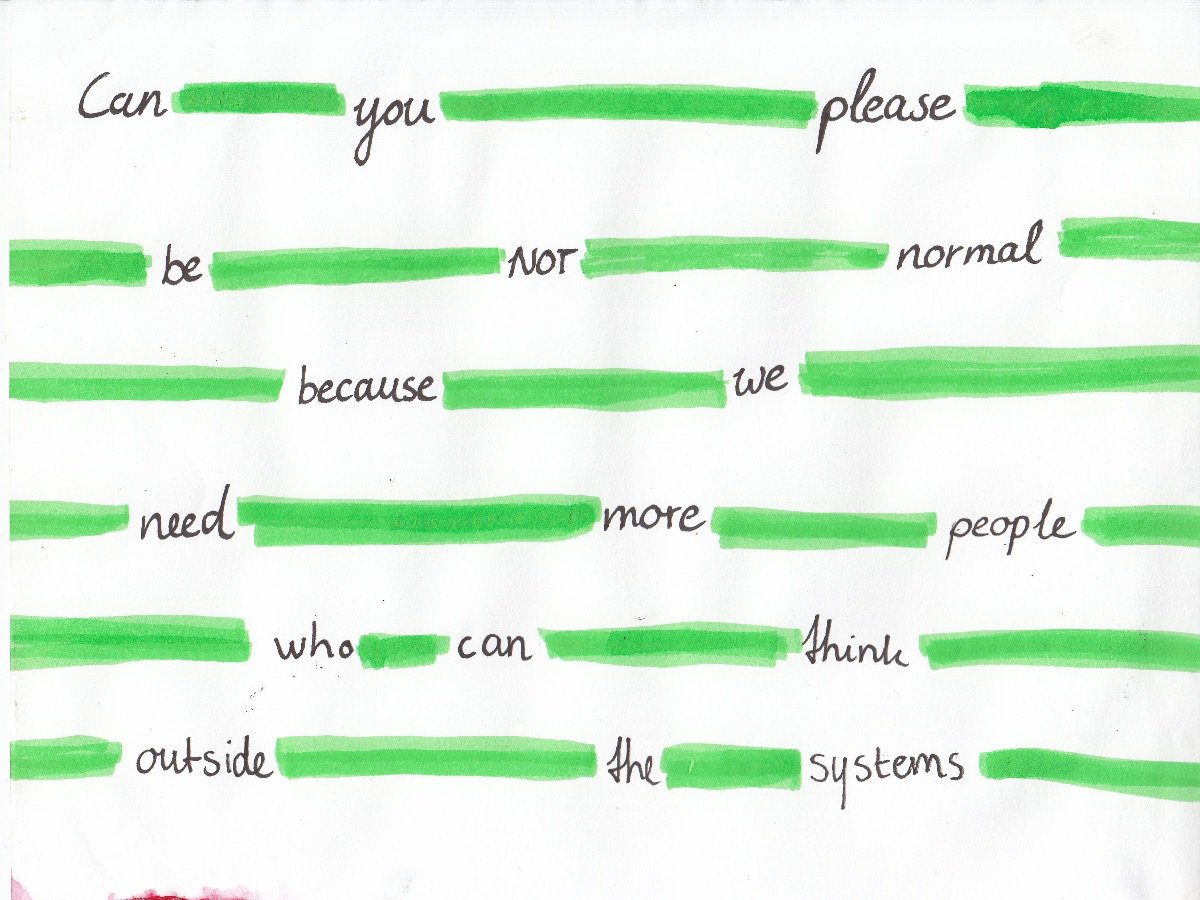 Can you please
be NOT normal
because we
need more people
who can think
outside the systems